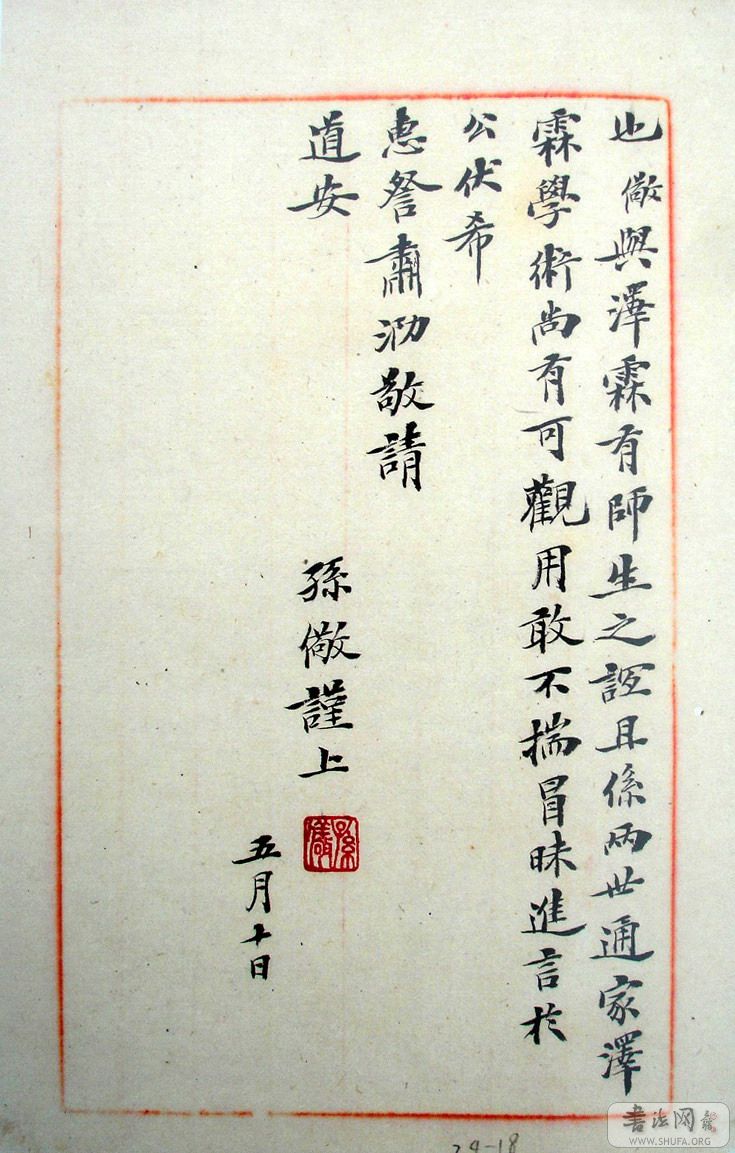 也儆與澤霖有師生之誼且係兩世通家澤
霖學術尚有可觀用敢不揣冒昧進言於
公伏希
惠詧肅泐敬請
道安
孫儆謹上
孫儆
五月十日
24-18
書法网
WWW.SHUFA.ORG